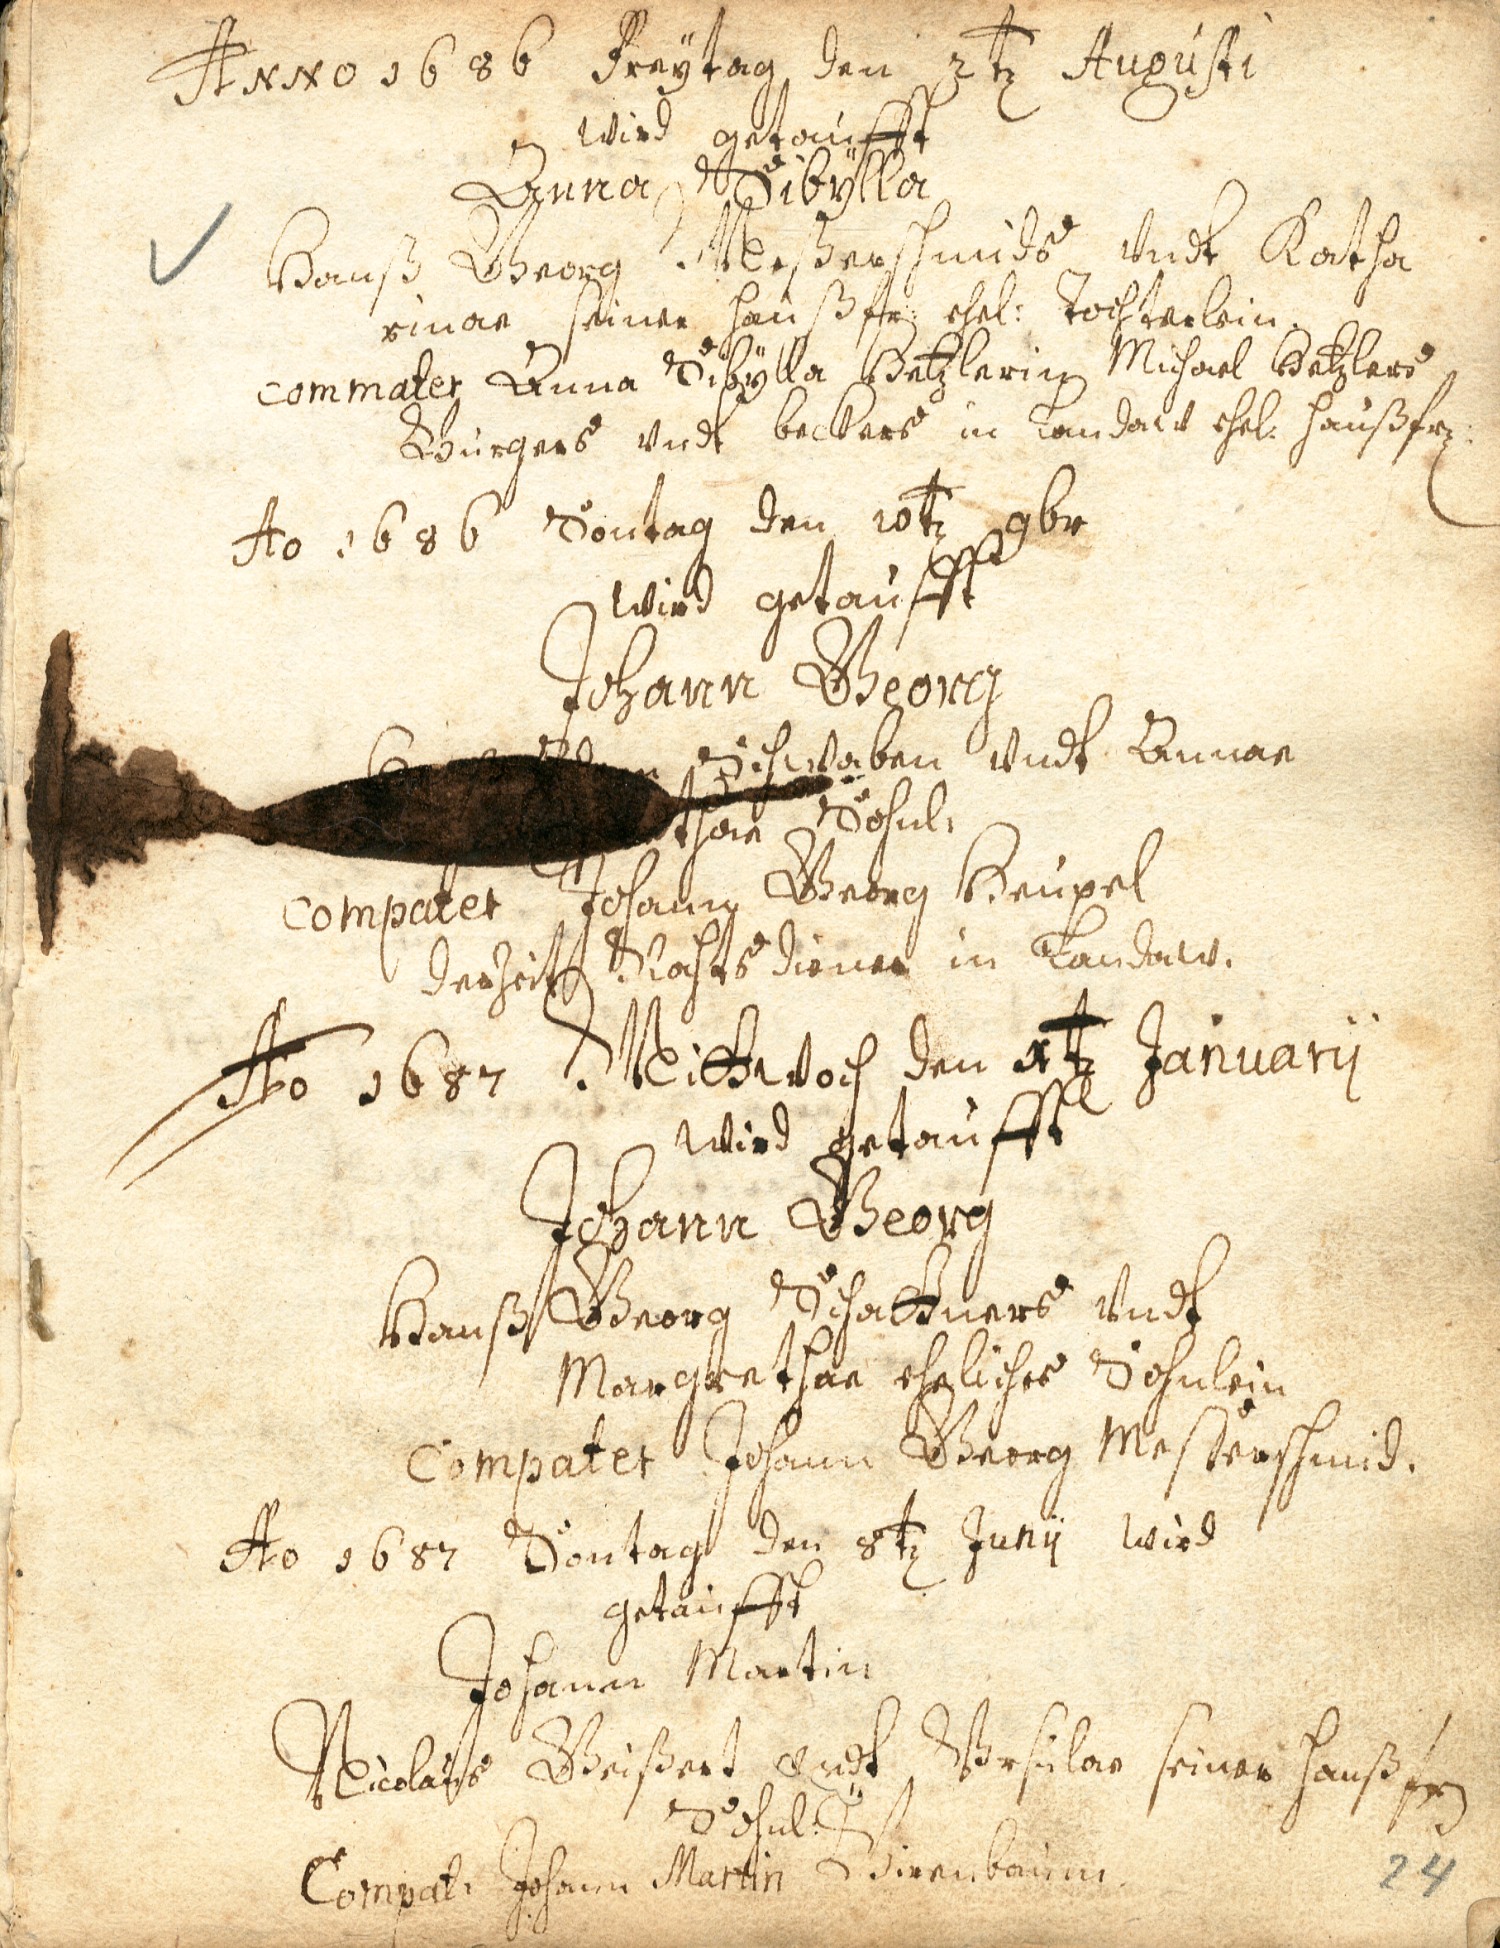 ANNO 1686 Freytag den 2tz Augusti
wird getaufft
Anna Sibÿlla
Hanß Georg Meßerschmids Vndt Katha
rinae seiner haußfr: ehel: Tochterlein.
commater Anna Sibÿlla Hetzlerin Michael Hetzlers
Burgers vndt beckers in Landaw ehel: haußfr:
Ao 1686 Sontag den 10tz 9br
wird getaufft
Johann Georg
Schwaben Vndt Annae
thae Sohnl:
compater Johann Georg Heupel
derzeit Rahts diener in Landaw.
Ao 1687 Mittwoch den 1tz Januarij
wird getaufft
Johann Georg
Hanß Georg Schattners Vndt
Margrethae eheliches Sohnlein
Compater Johann Georg Messerschmid.
Ao 1687 Sontag den 8tz Junij wird
getaufft
Johann Martin
Nicolaus Geißert Vndt Vrsulae seiner haußfr
Sohnl:
Compat: Johann Martin Birenbaum
24